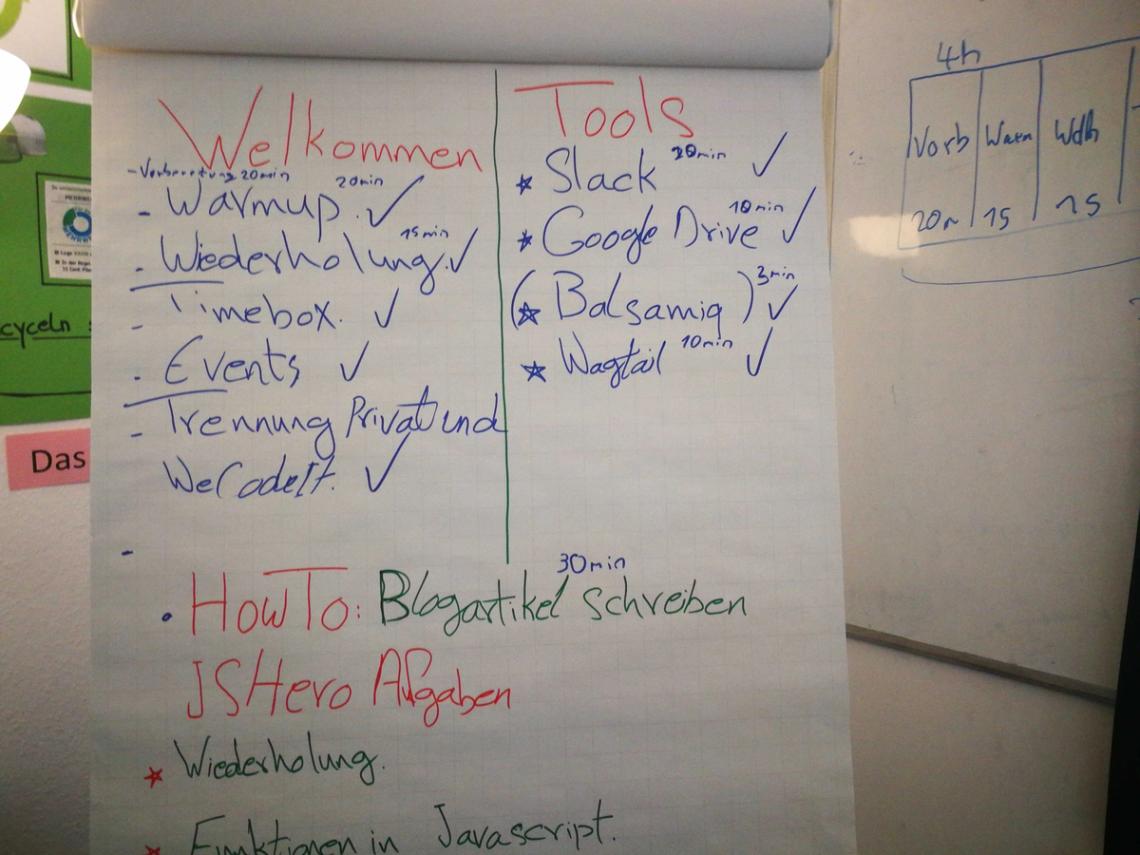 Welkommen
- Vorbereitung 20min
20min
- Warmup. ✓
15min
- Wiederholung. ✓
- Timebox. ✓
- Events ✓
- Trennung Privat und
WeCodeIt. ✓
-
Tools
20min
* Slack ✓
10min
* Google Drive ✓
3min
(* Balsamiq) ✓
10min
* Wagtail ✓
30min
• HowTo: Blogartikel schreiben
JSHero Afgaben
* Wiederholung.
* Funktionen in Javascript.
4h
Vorb Warm Wdh
20m 15 15
cyceln
Das